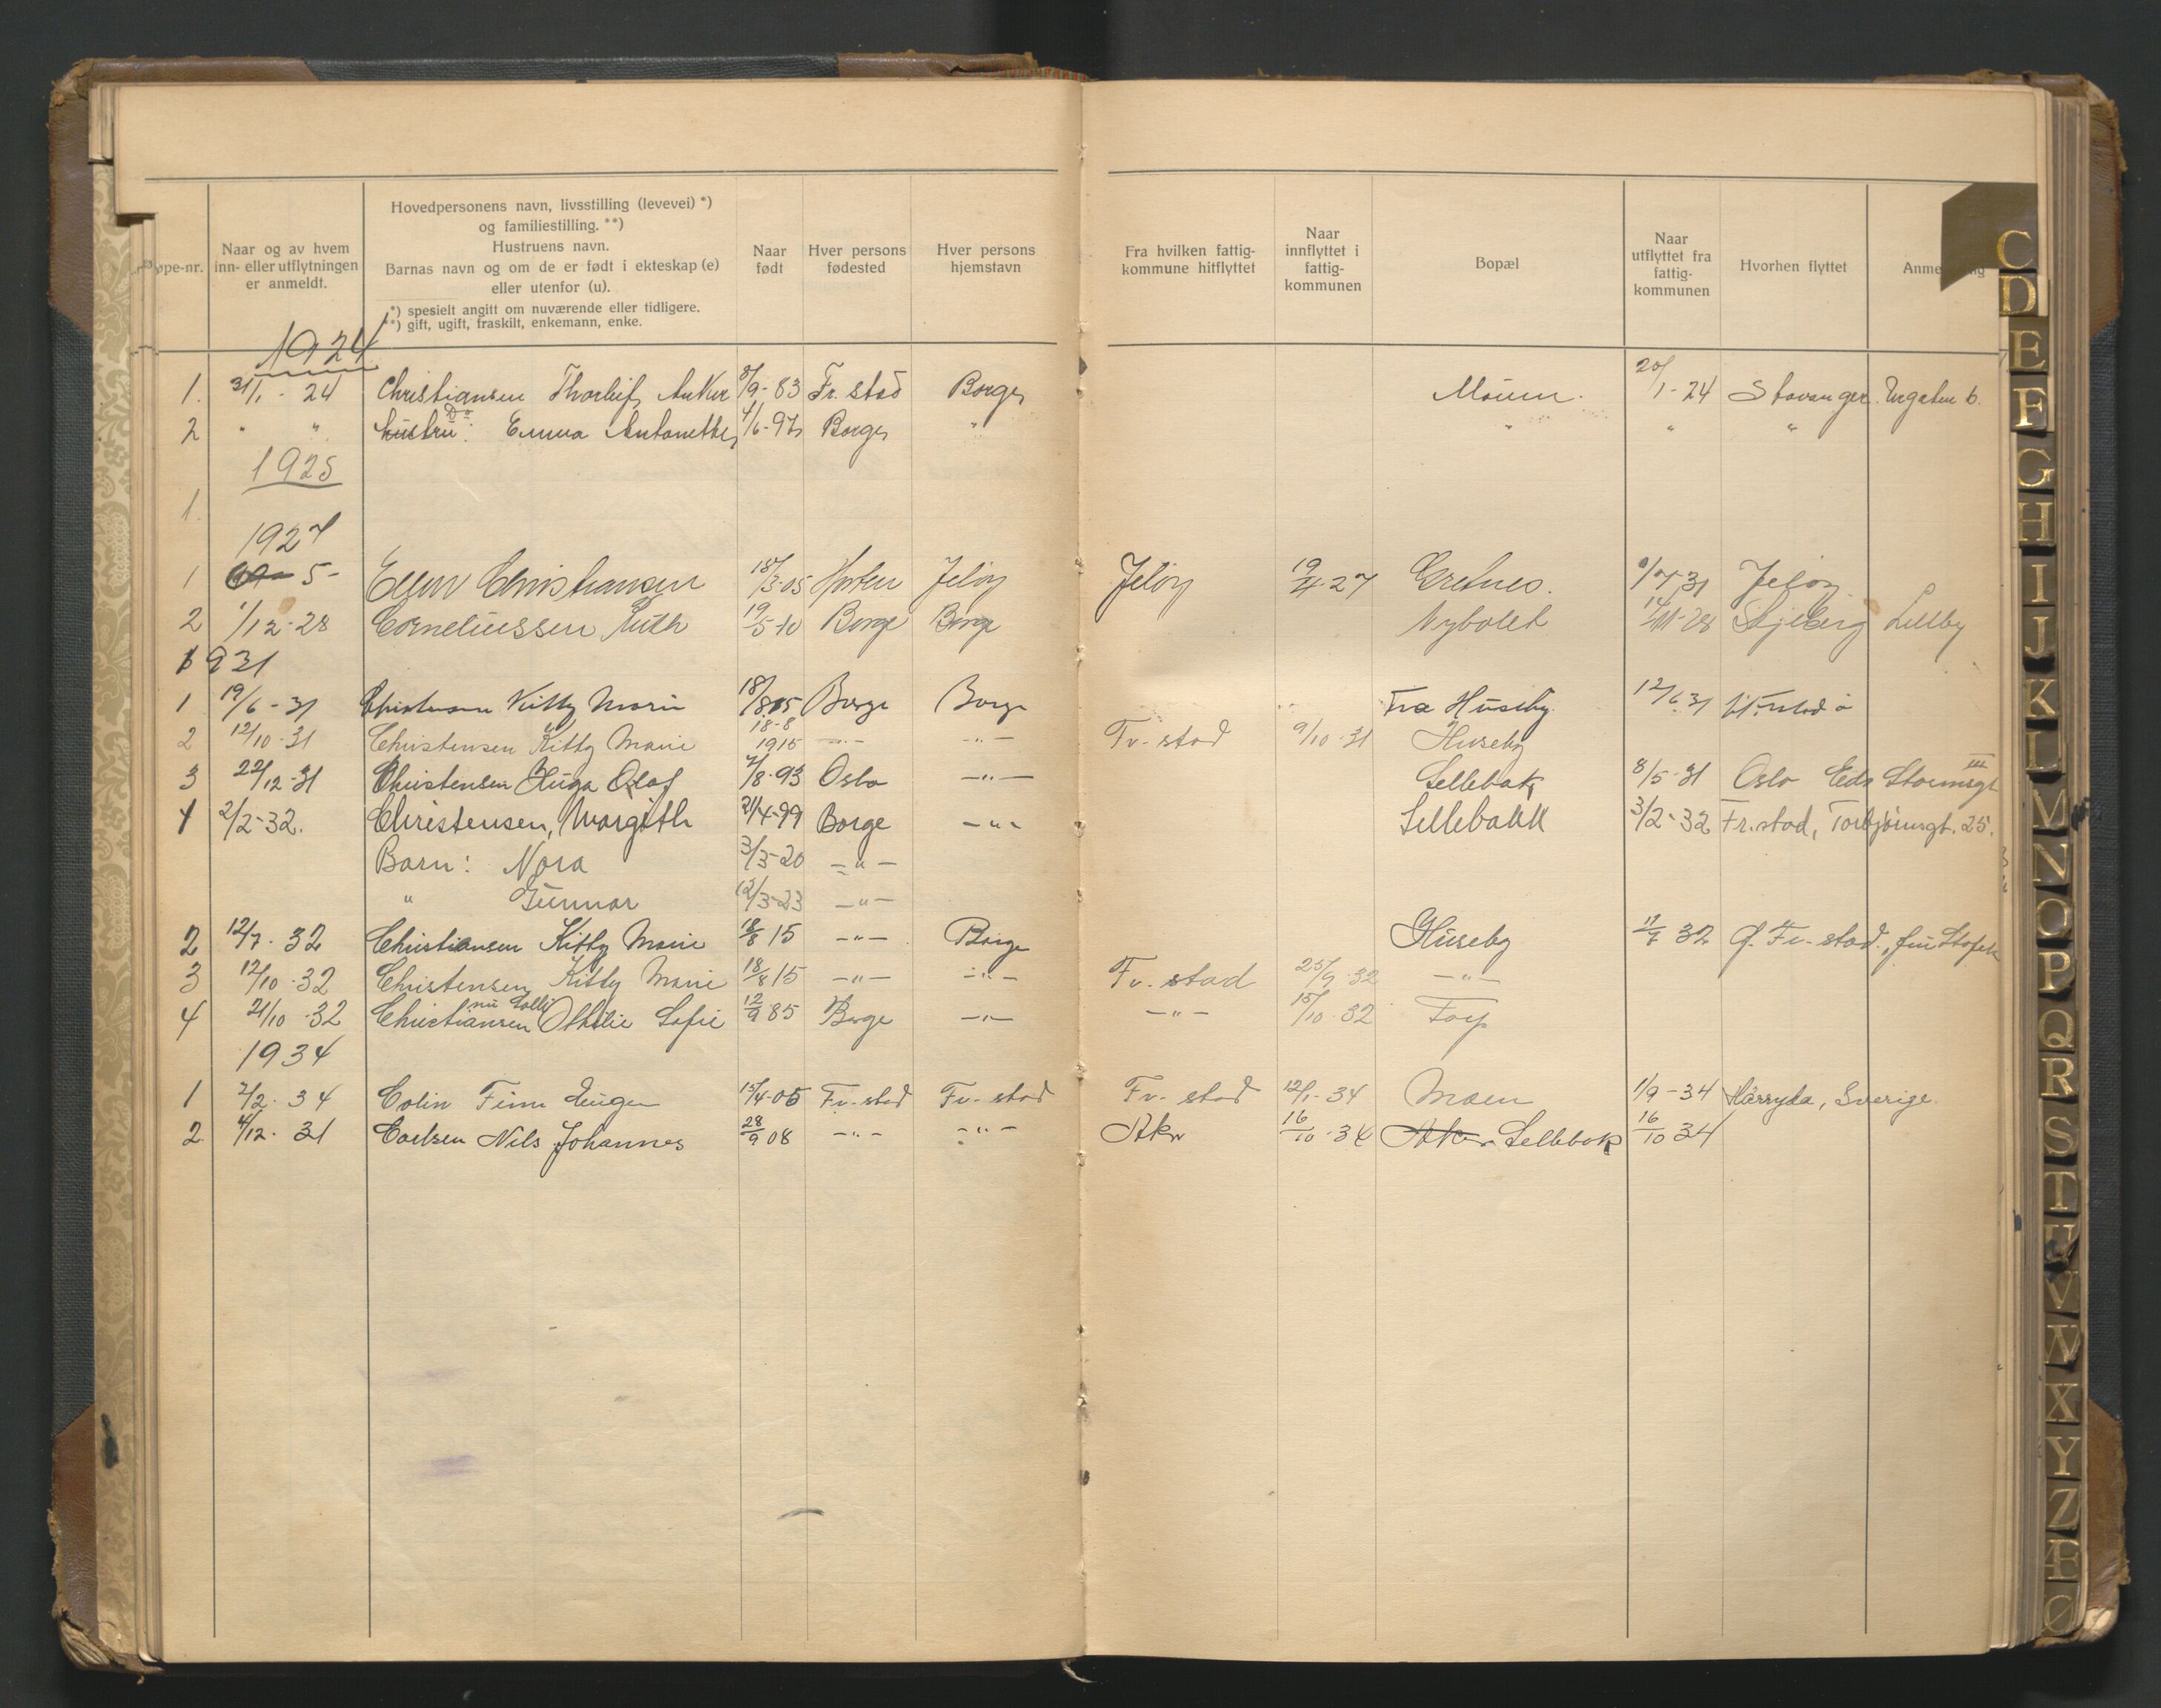 Løpe-nr.
Naar og av hvem
inn- eller utflytningen
er anmeldt.
Hovedpersonens navn, livsstilling (levevei) *)
og familiestilling. **)
Hustruens navn.
Barnas navn og om de er født i ekteskap (e)
eller utenfor (u).
*) spesielt angitt om nuværende eller tidligere.
**) gift, ugift, fraskilt, enkemann, enke.
Naar
født
Hver persons
fødested
Hver persons
hjemstavn
Fra hvilken fattig-
kommune hitflyttet
Naar
innflyttet i
fattig-
kommunen
Bopæl
Naar
utflyttet fra
fattig-
kommunen
Hvorhen flyttet
1924
1. 31/1 - 24 Christiansen Thorleif Anker 8/9-83 Fr.stad Borge Moum. 20/1-24 Stavanger.
2 " " Hustru: Do Emma Antonette 4/6-97 Borge " " " "
1925
1.
1927
1 5- Ellen Christiansen 18/3-05 Horten Jeløy Jeløy 19/4-27 Jeløy
2 1/12-28 Corneliussen Ruth 19/5-10 Borge Borge 14/11-28 Skjeberg
1931
1 19/6-31 Christensen Kitty Marie 18/8 15 Borge Borge Fra Huseby 12/6 31
2 12/10-31 Christensen Kitty Marie 18-8 1915 -"- -"- Fr.stad 9/10-31 Huseby
3 22/12-31 Christensen Hugo Olaf 7/8-93 Oslo -"- Sellebak 8/5-31 Oslo
1 2/2-32. Christensen, Margith 21/4-99 Borge -"- Sellebakk 3/2-32 Fr.stad, Torbjørnsgt. 25.
Barn: Nora 3/3-20 -"-
" Gunnar 12/3-23 -"-
2 12/7-32 Christiansen Kitty Marie 18/8 15 -"- Borge Huseby 32 Fr.stad.
3 12/10-32 Christensen Kitty Marie 18/8 15 -"- -"- Fr.stad 25/9-32 -"-
4 21/10-32 Christiansen nu Solli Othilie Sofie 12/9 85 Borge -"- -"- 15/10-32 Torp
1934
1 2/2-34 Colin Finn Eugen 15/4-05 Fr.stad Fr.stad Fr.stad 12/1-34 Moen 1/9-34 Härryda, Sverige.
2 4/12-31 Carlsen Nils Johannes 28/9 08 -"- -"- Aker 16/10-34 Aker Sellebak 16/10 34
C
D
E
F
G
H
I
J
K
L
M
N
O
P
Q
R
S
T
U
V
W
X
Y
Z
Æ
Ø